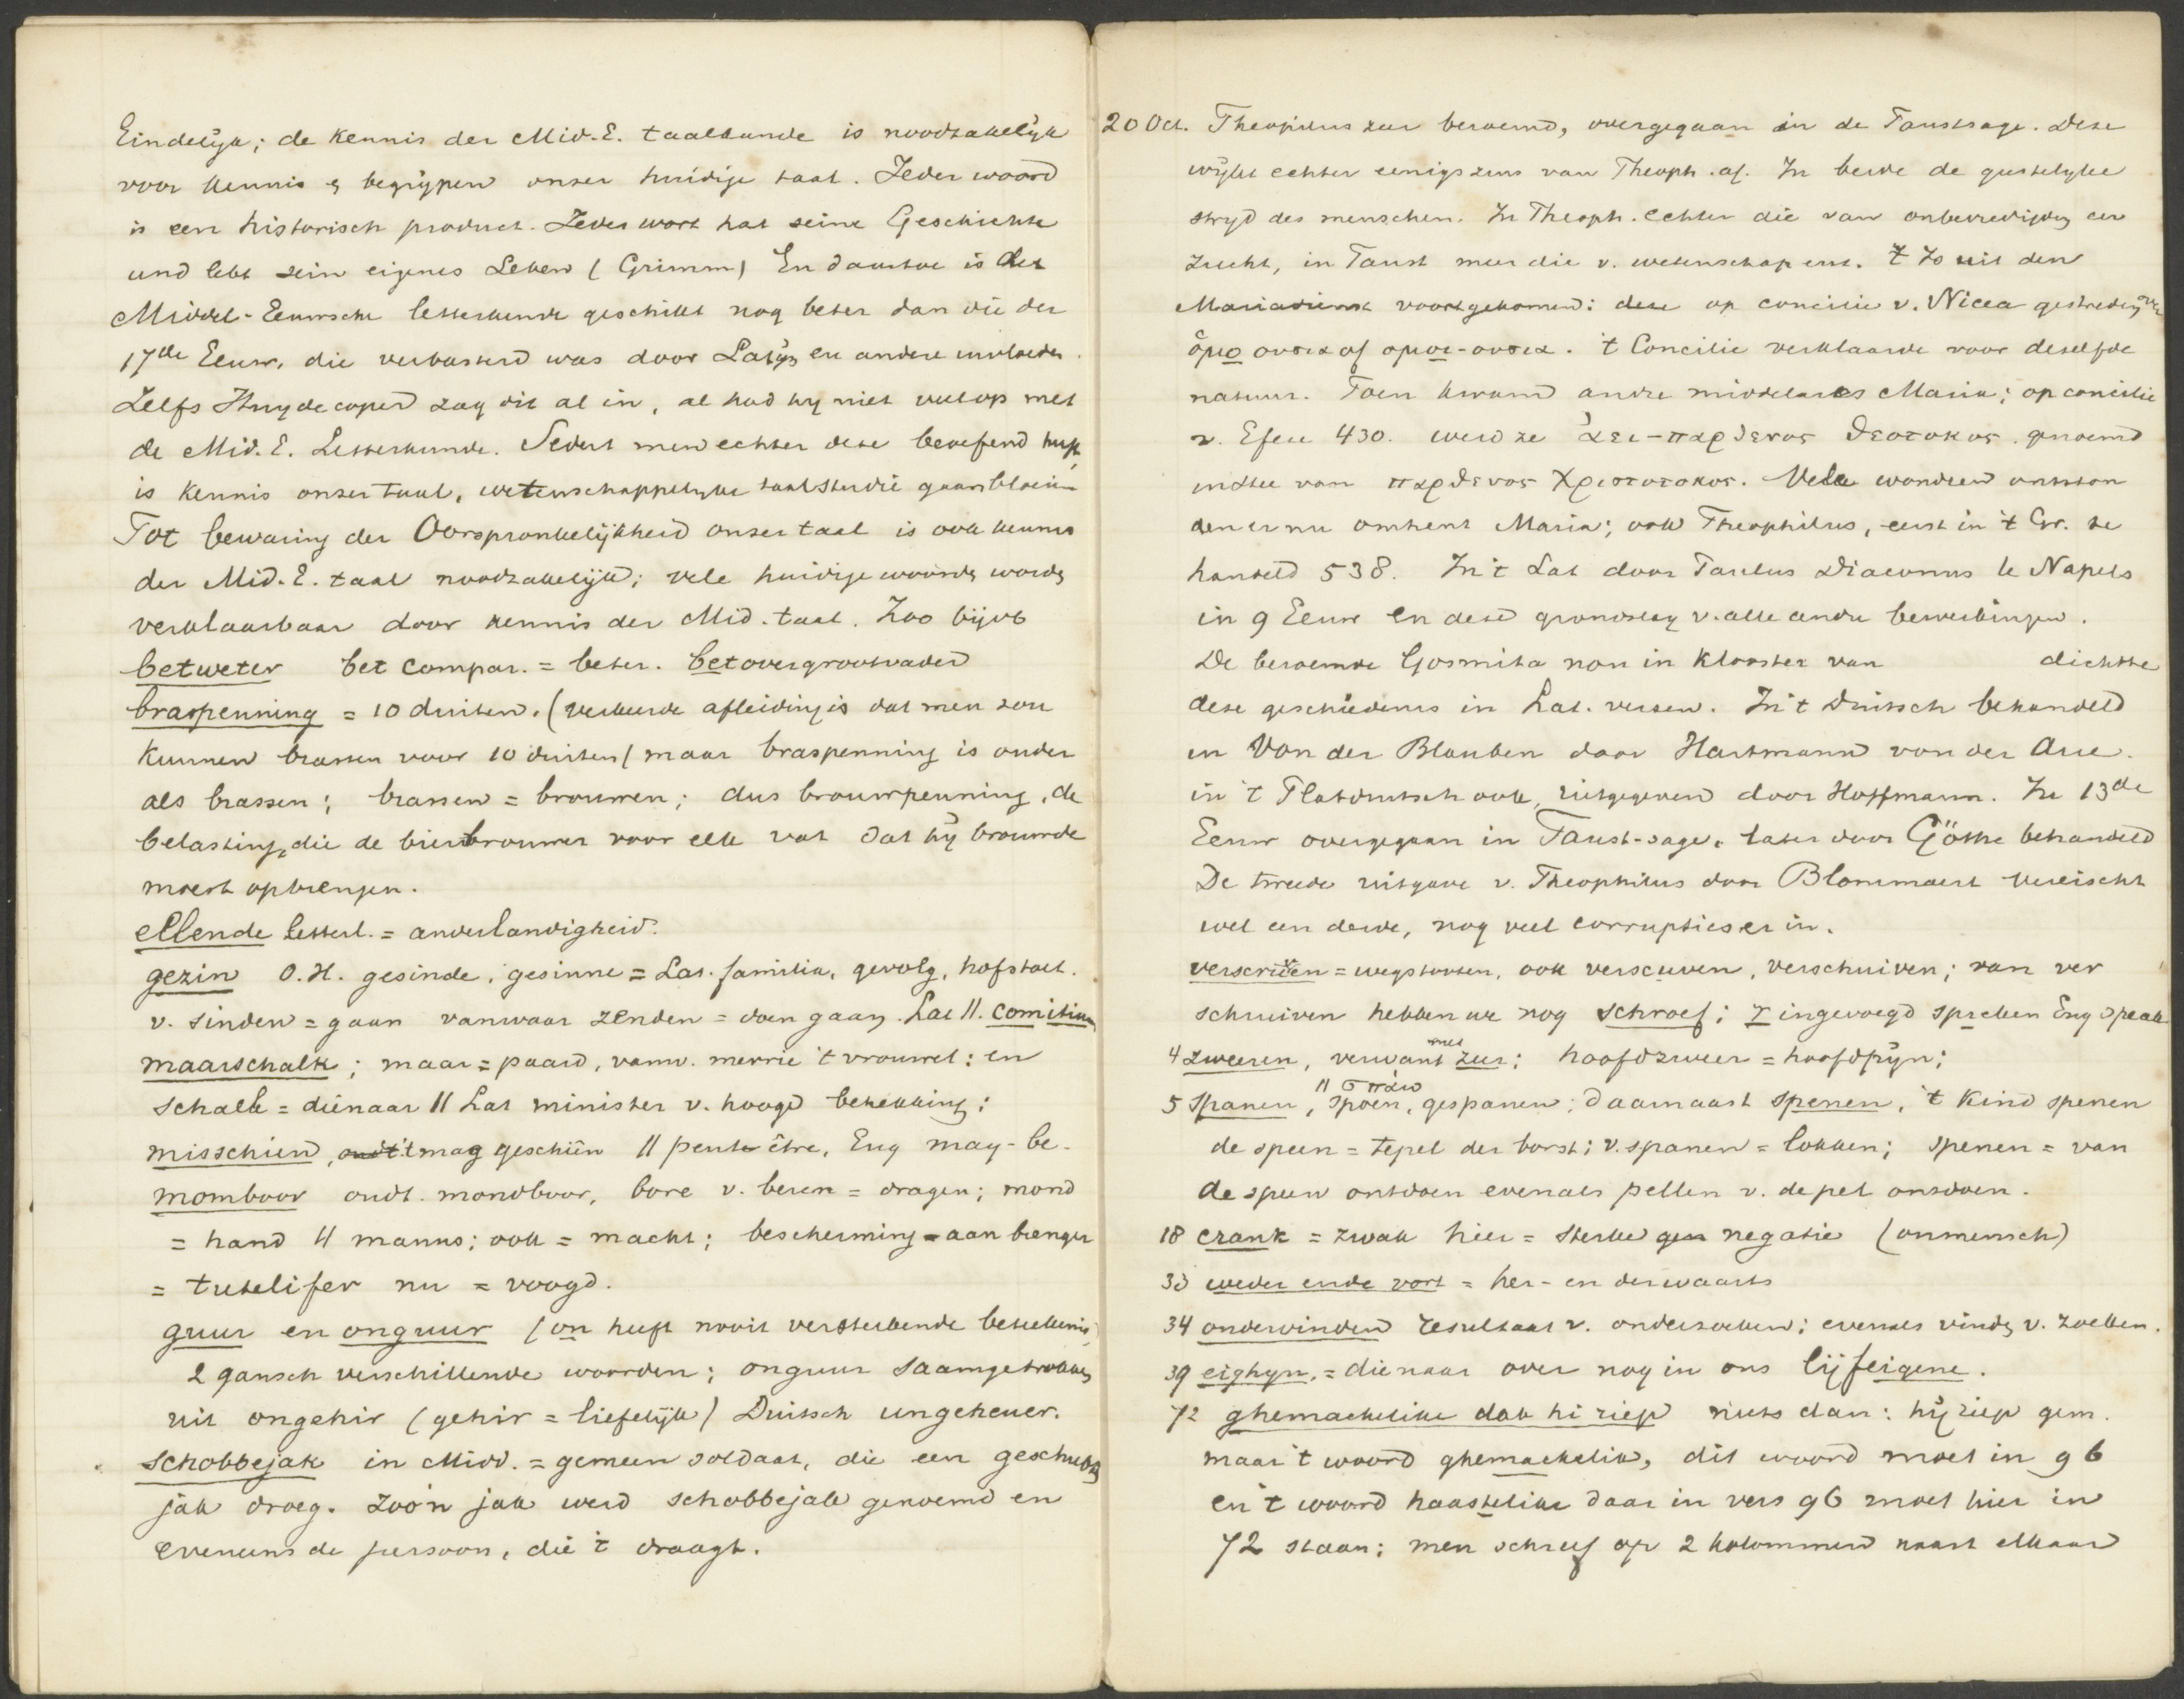 Eindelijk; de kennis der Mid.E. taalkunde is noodzakelijk
voor kennis & begrijpen onser huidige taal. Ieder woord
is een historisch product. Jedes wort hat seine Geschichte
und lebt sein eigenes Leben (Grimm) En daartoe is der
Middel-Eeuwsche letterkunde geschikt nog beter dan die der
17de Eeuw, die verbasterd was door Latijn en andere invloeden.
Zelfs Huydecoper zag dit al in, al had hy niet veel op met
de Mid. E. Letterkunde. Sedert men echter deze beoefend heeft,
is kennis onser taal, wetenschappelyke taalstudie gaan bloeien
Tot bewaring der Oorspronkelijkheid onser taal is ook kennis
der Mid. E. taal noodzakelijk; vele huidige woorden worden
verklaarbaar door kennis der Mid. taal. Zoo bijvb
betweter bet compar. = beter. betovergrootvader
braspenning = 10 duiten. (verkeerde afleiding is dat men zou
kunnen brassen voor 10 duiten) maar braspenning is ouder
als brassen; brassen = brouwen; dus brouwpenning, de
belasting, die de bierbrouwer voor elk vat dat hij brouwde
moest opbrengen.
ellende letterl. = anderlandigheid.
gezin O.H. gesinde, gesinne = Lat. familia, gevolg, hofstoet.
v. sinden = gaan vanwaar zenden = doen gaan. Lat ॥. comitium
maarschalk; maar = paard, vanw. merrie 't vrouwel: en
schalk = dienaar ॥ Lat minister v. hooge betrekking;
misschien, 't mag geschiên ॥ peut-être, Eng may-be.
momboor oudt. mondboor, bore v. beren = dragen; mond
= hand ॥ manus; ook = macht; bescherming-aanbrenger
= tutelifer nu = voogd.
guur en onguur (on heeft nooit versterkende beteekenis)
2 gansch verschillende woorden; onguur saamgetrokken
uit ongehir (gehir = liefelijk) Duitsch ungeheuer.
schobbejak in Midd. = gemeen soldaat, die een geschubde
jak droeg. Zoo'n jak werd schobbejak genoemd en
eveneens de persoon, die 't draagt.
20 Oct. Theophilus zeer beroemd, overgegaan in de Faustsage. Deze
wijkt echter eenigszins van Theoph. af. In beide de geestelyke
stryd des menschen. In Theoph. echter die van onbevredigde eer
zucht, in Faust meer die v. wetenschap enz. 't Is uit den
Mariadienst voortgekomen: deze op concilie v. Nicea gestreden over
ὁμοουσια of ομοι-ουσια. 't Concilie verklaarde voor dezelfde
natuur. Toen kwam andre middelares Maria; op concilie
v. Efeze 430. werd ze ἀει-παρθενος θεοτοκος genoemd
instee van παρθενος Χριστοτοκος. Vele wonderen ontston
den er nu omtrent Maria; ook Theophilus, eerst in 't Gr. be
handeld 538. In 't Lat door Paulus Diaconus te Napels
in 9 Eeuw en deze grondslag v. alle andre bewerkingen.
De beroemde Gosmita non in klooster van dichtte
deze geschiedenis in Lat. verzen. In 't Duitsch behandeld
in Von der Glauben door Hartmann von der Aue.
in 't Platduitsch ook, uitgegeven door Hoffmann. In 13de
Eeuw overgegaan in Faust-sage, later door Göthe behandeld
De tweede uitgave v. Theophilus door Blommaert vereischt
wel een derde, nog veel corrupties er in.
verscriven = wegstooten, ook verscuven, verschuiven; van ver
schruiven hebben we nog schroef; r ingevoegd spreken Eng speak
4 zweeren, verwant met zeer; hoofdzweer = hoofdpijn;
5 Spanen, ॥ σπάω spoen, gespanen; daarnaast spenen, 't kind spenen
de speen = tepel der borst; v. spanen = lokken; spenen = van
de speen ontdoen evenals pellen v. de pel ontdoen.
18 crank = zwak hier = sterke negatie (onmensch)
33 weder ende vort = her- en derwaarts
34 ondervinden resultaat v. onderzoeken; evenals vinden v. zoeken.
39 eighyn. = dienaar over nog in ons lijfeigene.
72 ghemackelike dat hi riep niets dan: hij riep gem.
maar 't woord ghemackelik, dit woord moet in 96
en 't woord haastelike daar in vers 96 moet hier in
72 staan; men schreef op 2 kolommen naast elkaar